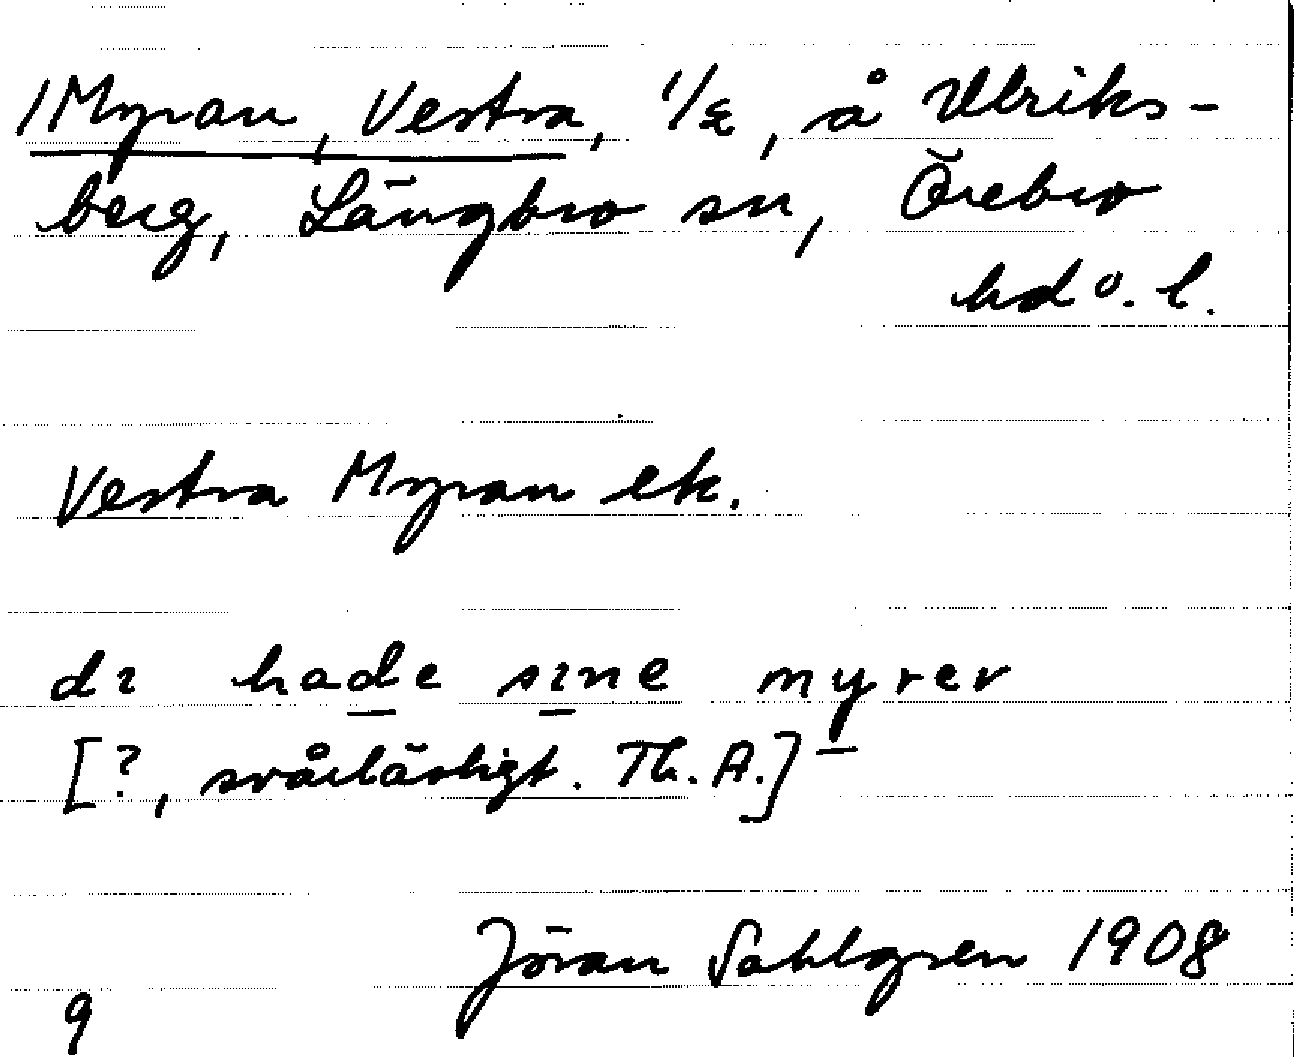 /Myran, Vestra, 1/2, å Ulriks-
berg, Längbro sn, Örebro
hd o. l.
Vestra Myran ek.
dı hade sıne myrer
[?, svårläsligt. Th. A.]
Jöran Sahlgren 1908
9